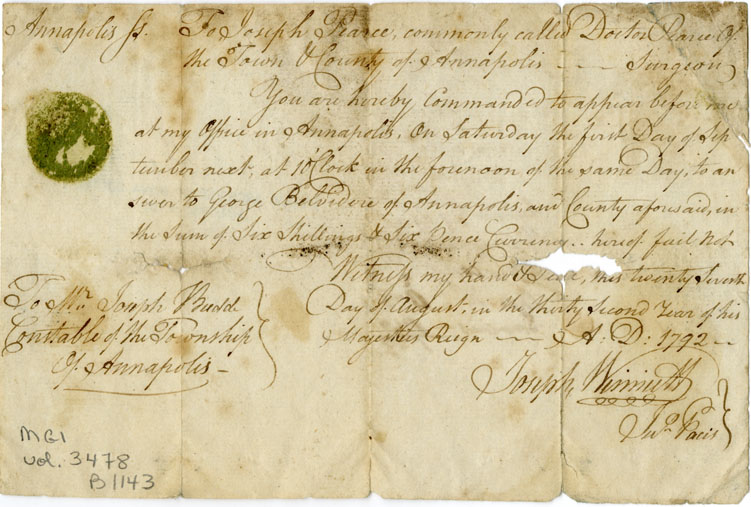 Annapolis Ss. To Joseph Pearce, commonly called Doctor Pearce Of
the Town & County of Annapolis - - - Surgeon,
You are hereby Commanded to appear before me
at my Office in Annapolis, On Saturday the first Day of Sep
tember next, at 10 oClock in the forenoon of the same Day, to an
swer to George Belvidere of Annapolis, and County aforesaid, in
the Sum of Six Shillings & Six Pence Currency.. hereof fail Not
Witness my hand & Seal, this twenty Seventh
Day of August, in the thirty Second Year of his
Majesties Reign - - - A: D: 1792 -
To Mr. Joseph Budd
Constable of the Township
Of Annapolis -
Joseph Winniett
Jus. Pacis
MG1
vol. 3478
B1143